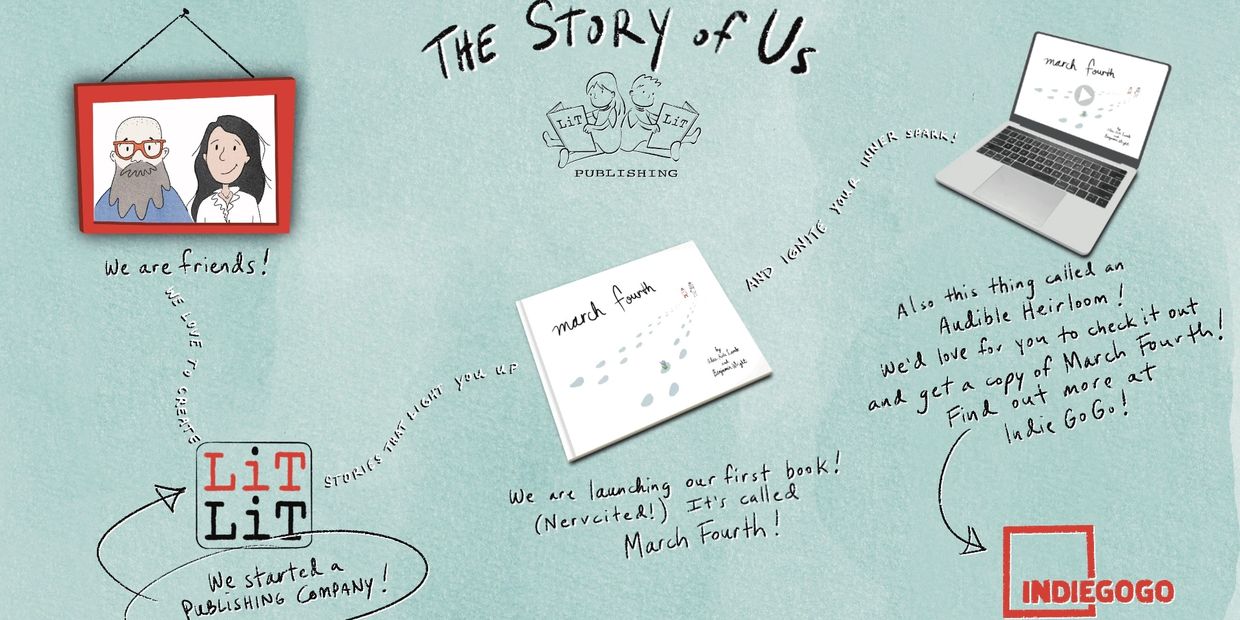 THE STORY of Us
LiT LiT
PUBLISHING
We are friends!
WE LOVE TO CREATE
LiT
LiT
We started a
PUBLISHING COMPANY!
STORIES THAT LIGHT YOU UP
march fourth
by
and
Benjamin Wright
We are launching our first book!
(Nervcited!) It's called
March Fourth!
AND IGNITE YOUR INNER SPARK!
march fourth
by
and
Benjamin Wright
Also this thing called an
Audible Heirloom!
We'd love for you to check it out
and get a copy of March Fourth!
Find out more at
Indie GoGo!
INDIEGOGO